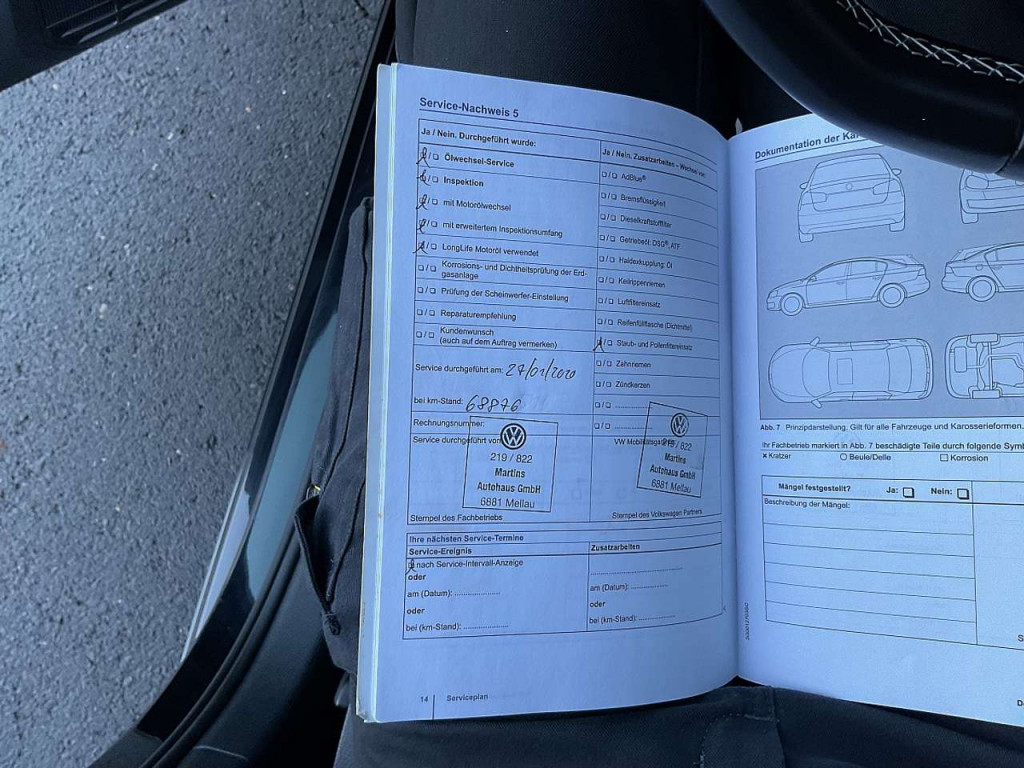 Service-Nachweis 5
Ja / Nein. Durchgeführt wurde:
❑/❑ Ölwechsel-Service
❑/❑ Inspektion
❑/❑ mit Motorölwechsel
❑/❑ mit erweitertem Inspektionsumfang
❑/❑ LongLife Motoröl verwendet
❑/❑ Korrosions- und Dichtheitsprüfung der Erd-
gasanlage
❑/❑ Prüfung der Scheinwerfer-Einstellung
❑/❑ Reparaturempfehlung
❑/❑ Kundenwunsch
(auch auf dem Auftrag vermerken)
Service durchgeführt am: 27/01/2020
bei km-Stand: 68876
Rechnungsnummer:
Service durchgeführt von
219 / 822
Martins
Autohaus GmbH
6881 Mellau
Stempel des Fachbetriebs
Ja / Nein, Zusatzarbeiten – Wechsel von:
❑/❑ AdBlue®
❑/❑ Bremsflüssigkeit
❑/❑ Dieselkraftstofffilter
❑/❑ Getriebeöl: DSG®, ATF
❑/❑ Haldexkupplung: Öl
❑/❑ Keilrippenriemen
❑/❑ Luftfiltereinsatz
❑/❑ Reifenfüllflasche (Dichtmittel)
❑/❑ Staub- und Pollenfiltereinsatz
❑/❑ Zahnriemen
❑/❑ Zündkerzen
❑/❑ ................
❑/❑ ................
VW Mobilitätsgarantie
219 / 822
Martins
Autohaus GmbH
6881 Mellau
Stempel des Volkswagen Partners
Ihre nächsten Service-Termine
Service-Ereignis
❑ nach Service-Intervall-Anzeige
oder
am (Datum): ................
oder
bei (km-Stand): ................
Zusatzarbeiten
................
am (Datum): ................
oder
bei (km-Stand): ................
14 Serviceplan
Dokumentation der
Abb. 7 Prinzipdarstellung. Gilt für alle Fahrzeuge und Karosserieformen.
Ihr Fachbetrieb markiert in Abb. 7 beschädigte Teile durch folgende
x Kratzer
○ Beule/Delle
❑ Korrosion
Mängel festgestellt? Ja: ❑ Nein: ❑
Beschreibung der Mängel: